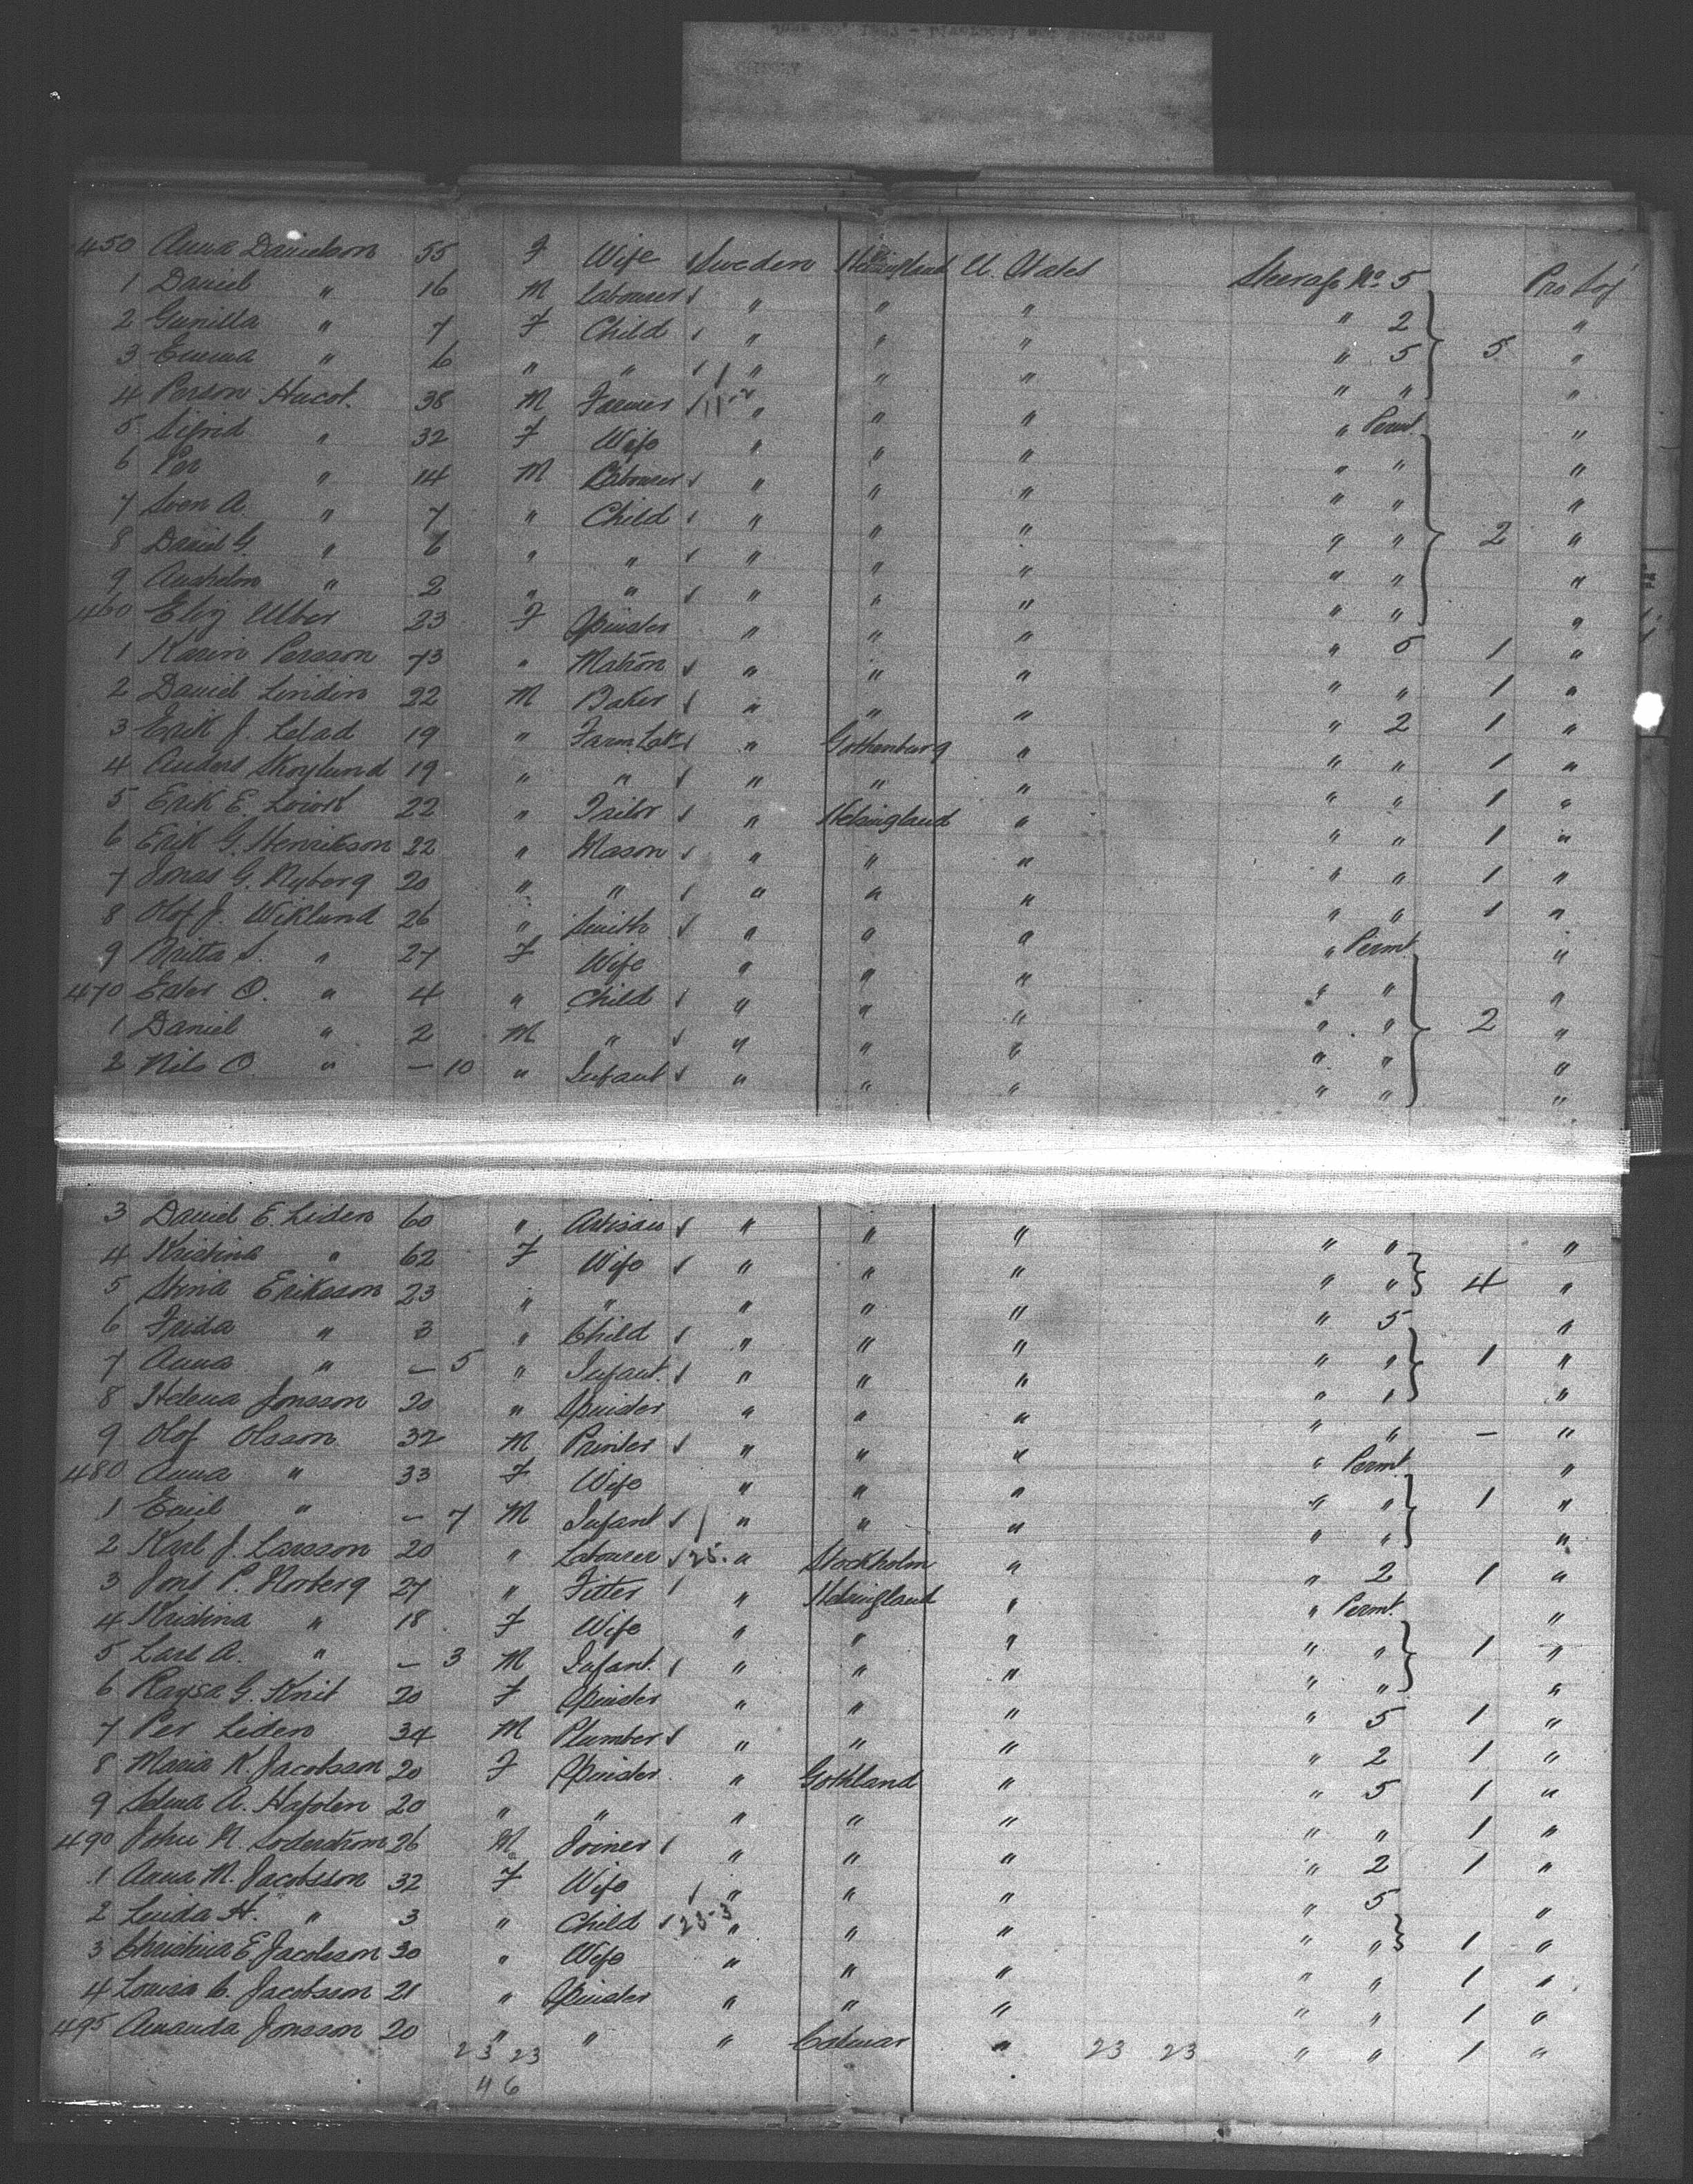 450 Anna Danielson 55 F Wife Sweden Helsingland U. States Steerage No. 5
1 Daniel " 16 M Labourer " " " " 2 "
2 Gunilla " 7 F Child " " " " 5 5 "
3 Emma " 6 " " " " " " " "
4 Person 38 M Farmer 11-2 " " " " Permt. "
5 Sigrid " 32 F Wife " " " " " "
6 Per " 14 M Labourer " " " " " "
7 Sven A. " 7 " Child " " " " " 2 "
8 Daniel G. " 6 " " " " " " " "
9 " 2 " " " " " " " "
460 23 F Spinster " " " " 5 1 "
1 Karin Persson 73 " Matron " " " " " 1 "
2 Daniel Lindin 22 M Baker " " " " 2 1 "
3 Erik J. 19 " Farm Lab " Gothenburg " " " 1 "
4 Anders Skoglund 19 " " " " " " " 1 "
5 Erik E. 22 " Tailor " Helsingland " " " 1 "
6 Erik G. Henrikson 22 " Mason " " " " " 1 "
7 Jonas G. Nyberg 20 " " " " " " " 1 "
8 Olof J. Wiklund 26 " Smith " " " " Permt. "
9 Britta S. " 27 F Wife " " " " " "
470 O. " 4 " Child " " " " " 2 "
1 Daniel " 2 M " " " " " " "
2 Nils O. " — 10 " Infant " " " " " "
3 Daniel E. Liden 60 " Artisan " " " " " "
4 Kristina " 62 F Wife " " " " " 4 "
5 Stina Eriksson 23 " " " " " " 5 "
6 Frida " 3 " Child " " " " " 1 "
7 Anna " — 5 " Infant. " " " " " "
8 Helena Jonsson 20 " Spinster " " " " " — "
9 Olof Olsson 32 M Printer " " " " Permt. "
480 Anna " 33 F Wife " " " " " 1 "
1 Emil " — 7 M Infant " " " " " "
2 Karl J. Larsson 20 " Labourer 25. " Stockholm " " 2 1 "
3 Jons P. Norberg 27 " Fitter " Helsingland " " Permt. "
4 Kristina " 18 F Wife " " " " " 1 "
5 Lars A. " — 3 M Infant. " " " " " "
6 20 F Spinster " " " " 5 1 "
7 Per Liden 34 M Plumber " " " " 2 1 "
8 Maria K. Jacobsson 20 F Spinster " Gothland " " 5 1 "
9 Selma A. 20 " " " " " " " 1 "
490 John N. Soderstrom 26 M Joiner " " " " 2 1 "
1 Anna M. Jacobsson 32 F Wife " " " " 5 "
2 Linda H. " 3 " Child 23-3 " " " " " 1 "
3 Christina E. Jacobsson 30 " Wife " " " " " 1 "
4 Louisa C. Jacobsson 21 " Spinster " " " " " 1 "
495 Amanda Jonsson 20 " " " Calmar " " " 1 "
23 23 23 23
46